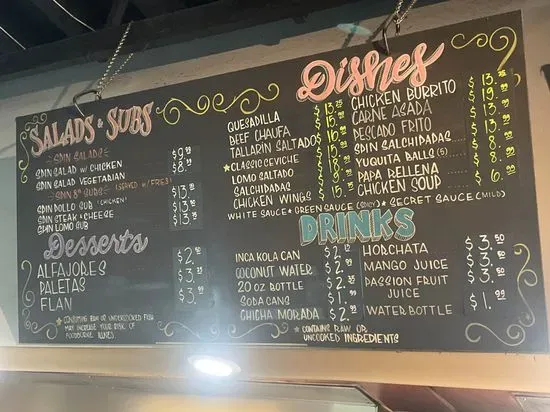 SALADS & SUBS
SPIN SALADS
SPIN SALAD W/ CHICKEN $9.
SPIN SALAD VEGETARIAN $8.
SPIN 8" SUBS (SERVED W/ FRIES)
SPIN POLLO SUB "CHICKEN" $13.
SPIN STEAK & CHEESE $13.
SPIN LOMO SUB $13.
Desserts
ALFAJORES $2.50
PALETAS $3.
FLAN $3.
CONSUMING RAW OR UNDERCOOKED FISH
MAY INCREASE YOUR RISK OF
FOODBORNE ILLNES
Dishes
QUESADILLA $13.
BEEF CHAUFA
TALLARIN SALTADO
★CLASSIC CEVICHE
LOMO SALTADO
SALCHIPADAS
CHICKEN WINGS
CHICKEN BURRITO $13.
CARNE ASADA $19.
PESCADO FRITO
SPIN SALCHIPADAS $13.
YUQUITA BALLS (5) $8.
PAPA RELLENA $8.
CHICKEN SOUP $6.
WHITE SAUCE ★ GREEN SAUCE (SPICY) ★ SECRET SAUCE (MILD)
DRINKS
INCA KOLA CAN $2.
COCONUT WATER $2.
20 OZ BOTTLE $2.
SODA CANS $1.
CHICHA MORADA $2.
HORCHATA $3.50
MANGO JUICE $3.50
PASSION FRUIT $3.50
JUICE
WATER BOTTLE $1.
★ CONTAINS RAW OR
UNCOOKED INGREDIENTS